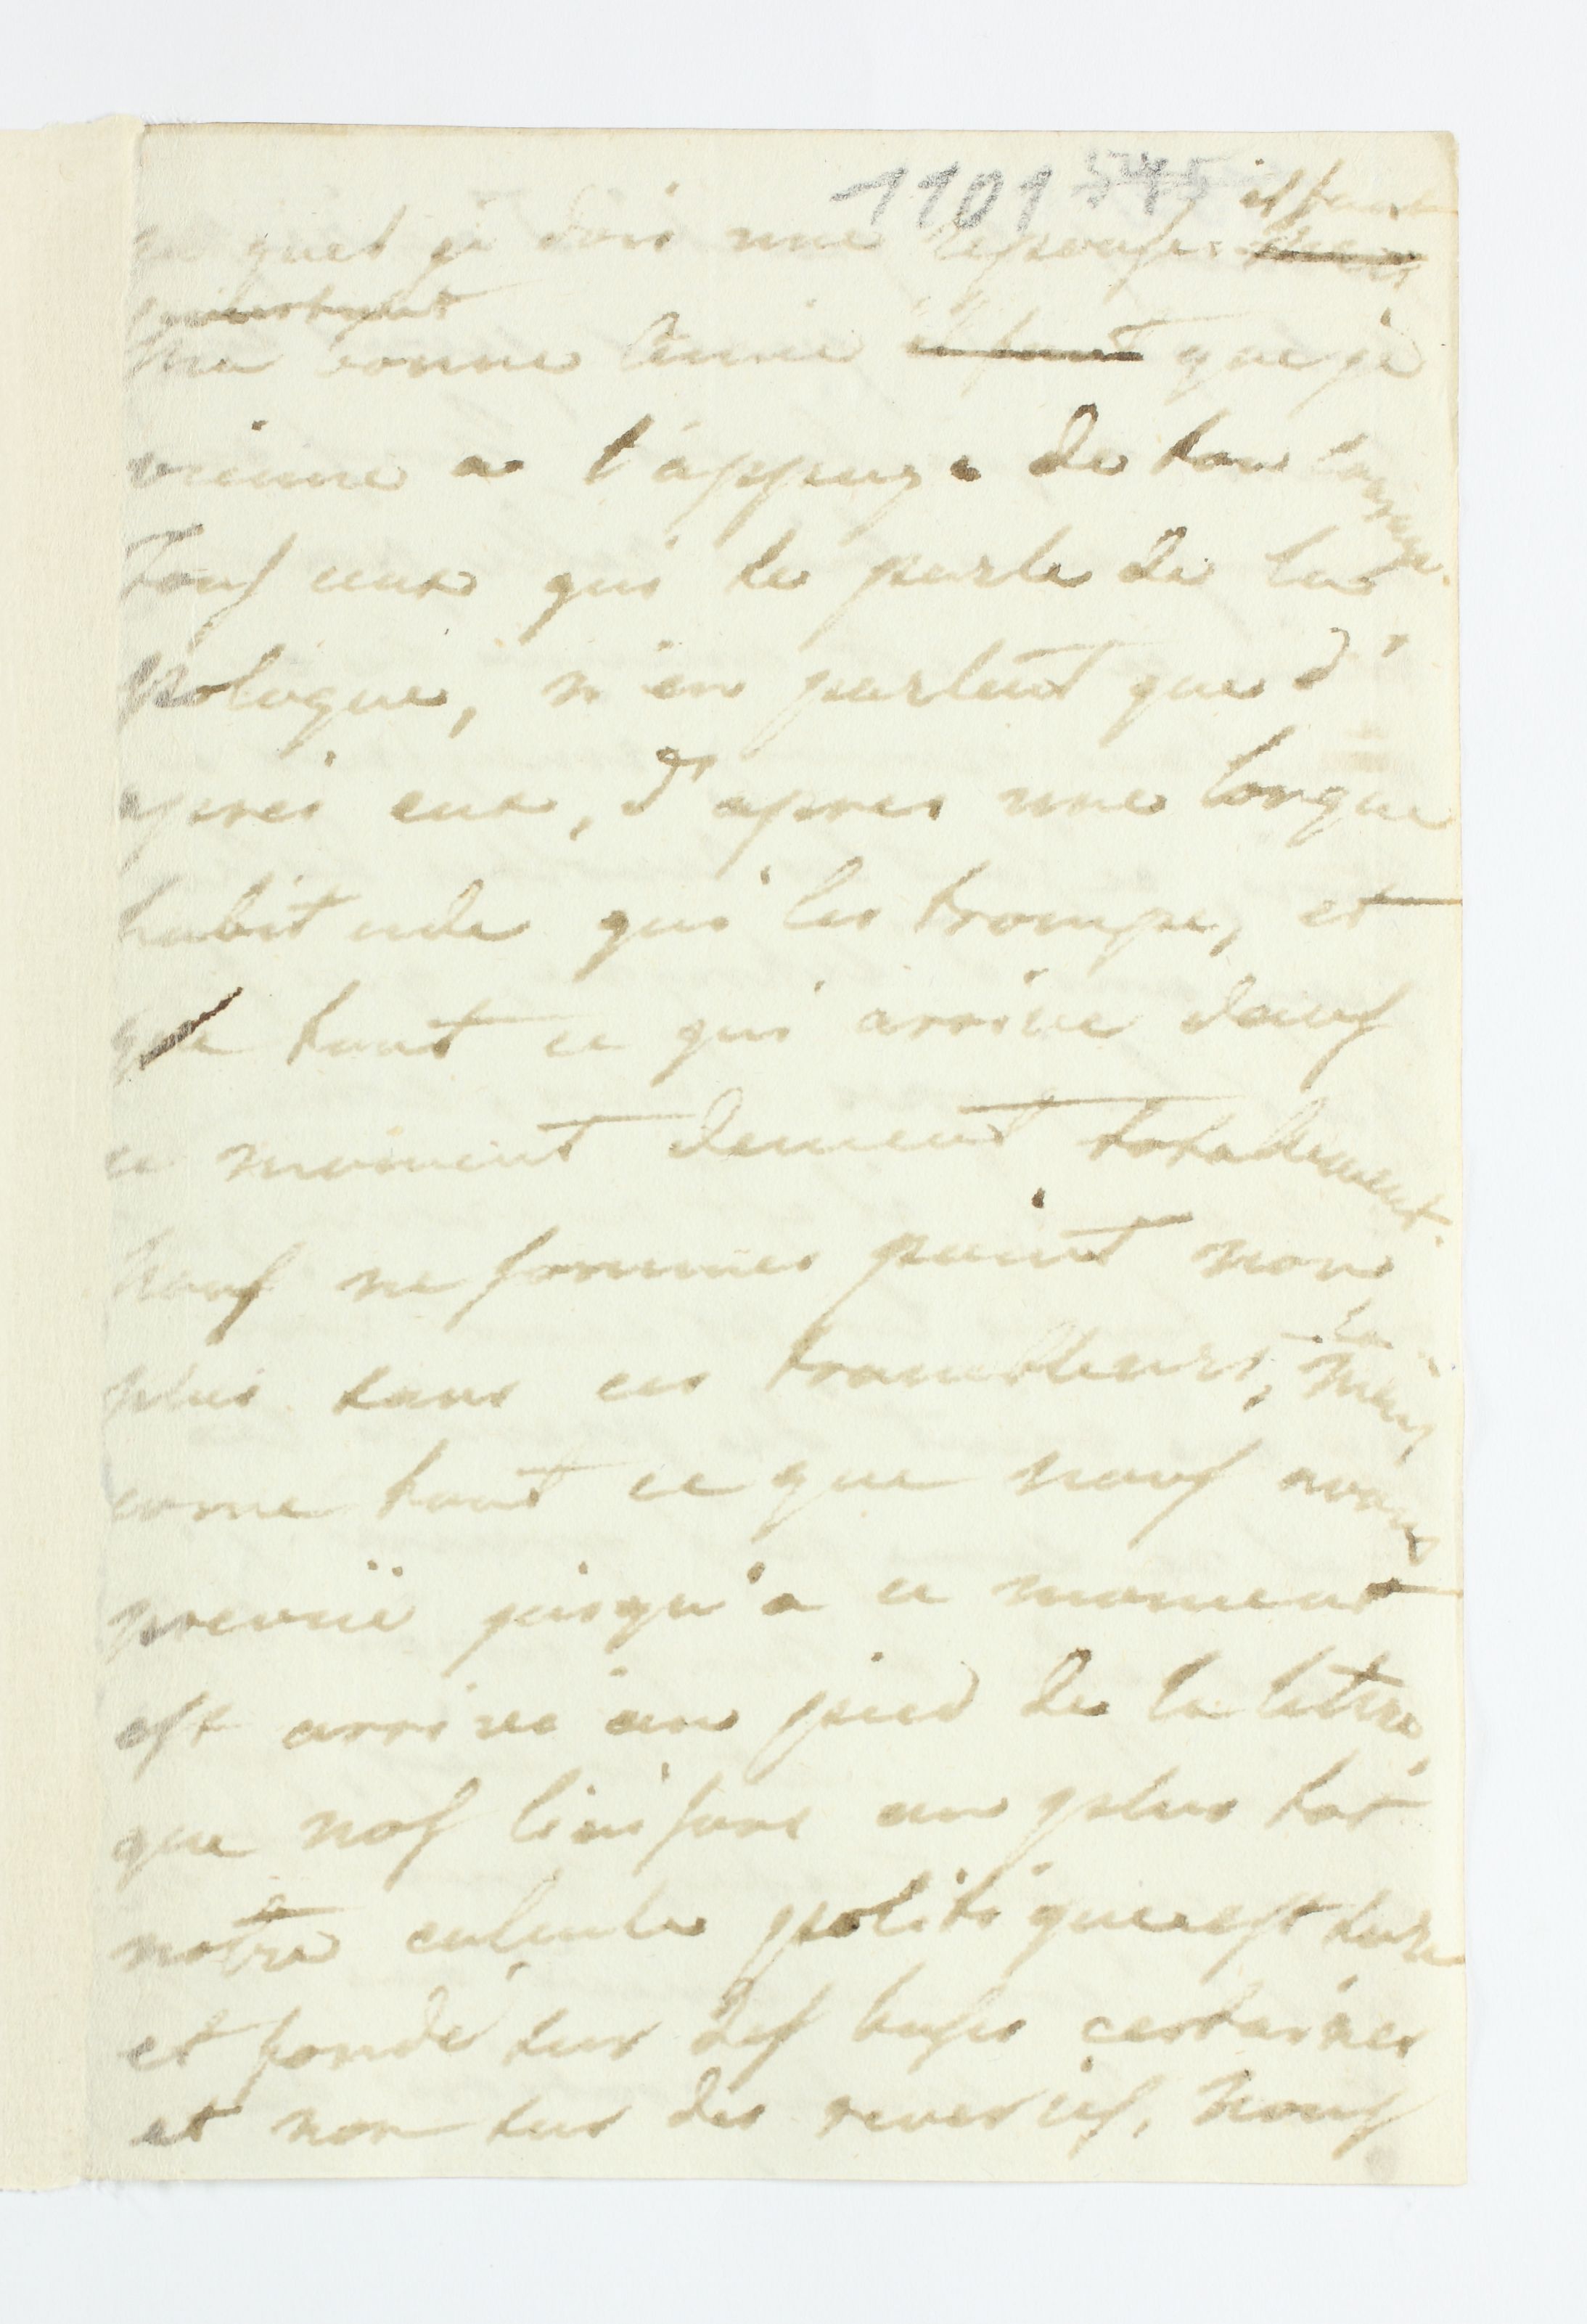 1101 545 il faut
au quel je dois une reponse.
ma bonne Amie il faut que je
vienne a t'appuye de ton courage.
Tous ceux qui te parle de la
pologne, n'en parlent que d'
aprés eux, d'apres une longue
habitude qui les trompe, et
que tout ce qui arrive dans
ce moment dement totallement.
Nous ne sommes point non
plus dans ces mais
come tout ce que nous avons
prevuë jusqu'a ce moment
est arrivé au pied de la lettre,
que nos au plus tot
notre calcule politique est sure
et fondé sur des bases certaines
et non sur des reveries, Nous